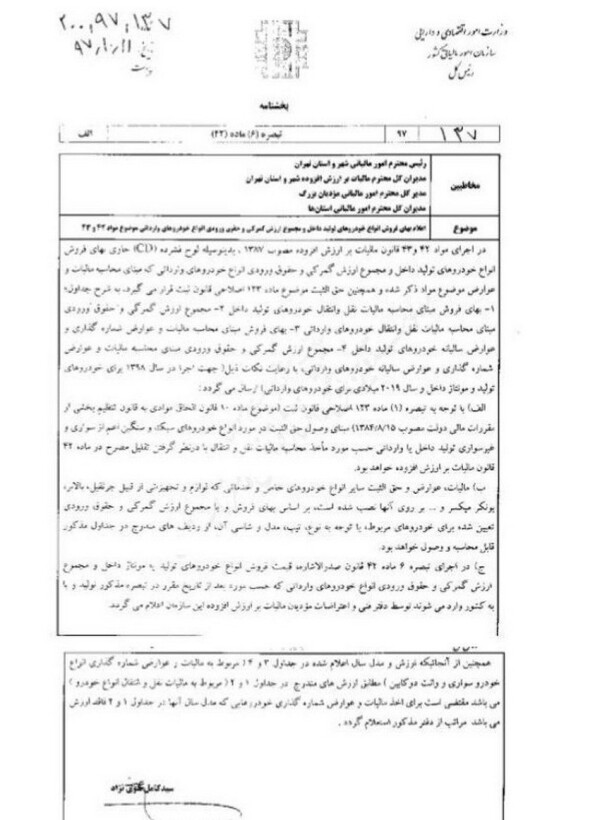 وزارت امور اقتصادی و دارایی
سازمان امور مالیاتی کشور
رئیس کل
۲۰۰,۹۷,۱۳۷
تاریخ ۹۷,۱۰,۱۱
پیوست
بخشنامه
۱۳۷ ۹۷ تبصره (۶) ماده (۴۲) الف
مخاطبین
رئیس محترم امور مالیاتی شهر و استان تهران
مدیران کل محترم مالیات بر ارزش افزوده شهر و استان تهران
مدیر کل محترم امور مالیاتی مؤدیان بزرگ
مدیران کل محترم امور مالیاتی استان‌ها
موضوع اعلام بهای فروش انواع خودروهای تولید داخل و مجموع ارزش گمرکی و حقوق ورودی انواع خودروهای وارداتی موضوع مواد ۴۲ و ۴۳
در اجرای مواد ۴۲ و۴۳ قانون مالیات بر ارزش افزوده مصوب ۱۳۸۷ ، بدینوسیله لوح فشرده (CD) حاوی بهای فروش
انواع خودروهای تولید داخل و مجموع ارزش گمرکی و حقوق ورودی انواع خودروهای وارداتی که مبنای محاسبه مالیات و
عوارض موضوع مواد ذکر شده و همچنین حق الثبت موضوع ماده ۱۲۳ اصلاحی قانون ثبت قرار می گیرد، به شرح جداول؛
۱- بهای فروش مبنای محاسبه مالیات نقل وانتقال خودروهای تولید داخل ۲- مجموع ارزش گمرکی و حقوق ورودی
مبنای محاسبه مالیات نقل وانتقال خودروهای وارداتی ۳- بهای فروش مبنای محاسبه مالیات و عوارض شماره گذاری و
عوارض سالیانه خودروهای تولید داخل ۴- مجموع ارزش گمرکی و حقوق ورودی مبنای محاسبه مالیات و عوارض
شماره گذاری و عوارض سالیانه خودروهای وارداتی، با رعایت نکات ذیل( جهت اجرا در سال ۱۳۹۸ برای خودروهای
تولید و مونتاژ داخل و سال ۲۰۱۹ میلادی برای خودروهای وارداتی) ارسال می گردد :
الف) با توجه به تبصره (۱) ماده ۱۲۳ اصلاحی قانون ثبت (موضوع ماده ۱۰ قانون الحاق موادی به قانون تنظیم بخشی از
مقررات مالی دولت مصوب ۱۳۸۴/۸/۱۵) مبنای وصول حق الثبت در مورد انواع خودروهای سبک و سنگین اعم از سواری و
غیرسواری تولید داخل یا وارداتی حسب مورد مأخذ محاسبه مالیات نقل و انتقال با درنظر گرفتن تقلیل مصرح در ماده ۴۲
قانون مالیات بر ارزش افزوده خواهد بود.
ب) مالیات، عوارض و حق الثبت سایر انواع خودروهای خاص و خدماتی که لوازم و تجهیزاتی از قبیل جرثقیل، بالابر،
بونکر میکسر و ... بر روی آنها نصب شده است، بر اساس بهای فروش و یا مجموع ارزش گمرکی و حقوق ورودی
تعیین شده برای خودروهای مربوط، با توجه به نوع، تیپ، مدل و شاسی آن، از ردیف های مندرج در جداول مذکور
قابل محاسبه و وصول خواهد بود.
ج) در اجرای تبصره ۶ ماده ۴۲ قانون صدرالاشاره، قیمت فروش انواع خودروهای تولید یا مونتاژ داخل و مجموع
ارزش گمرکی و حقوق ورودی انواع خودروهای وارداتی که حسب مورد بعد از تاریخ مقرر در تبصره مذکور تولید و یا
به کشور وارد می شوند توسط دفتر فنی و اعتراضات مؤدیان مالیات بر ارزش افزوده این سازمان اعلام می گردد.
همچنین از آنجائیکه ارزش و مدل سال اعلام شده در جداول ۳ و ۴ ( مربوط به مالیات و عوارض شماره گذاری انواع
خودرو سواری و وانت دوکابین ) مطابق ارزش های مندرج در جداول ۱ و ۲ ( مربوط به مالیات نقل و انتقال انواع خودرو )
می باشد مقتضی است برای اخذ مالیات و عوارض شماره گذاری خودروهایی که مدل سال آنها در جداول ۱ و ۲ فاقد ارزش
می باشد مراتب از دفتر مذکور استعلام گردد .
سید کامل تقوی نژاد